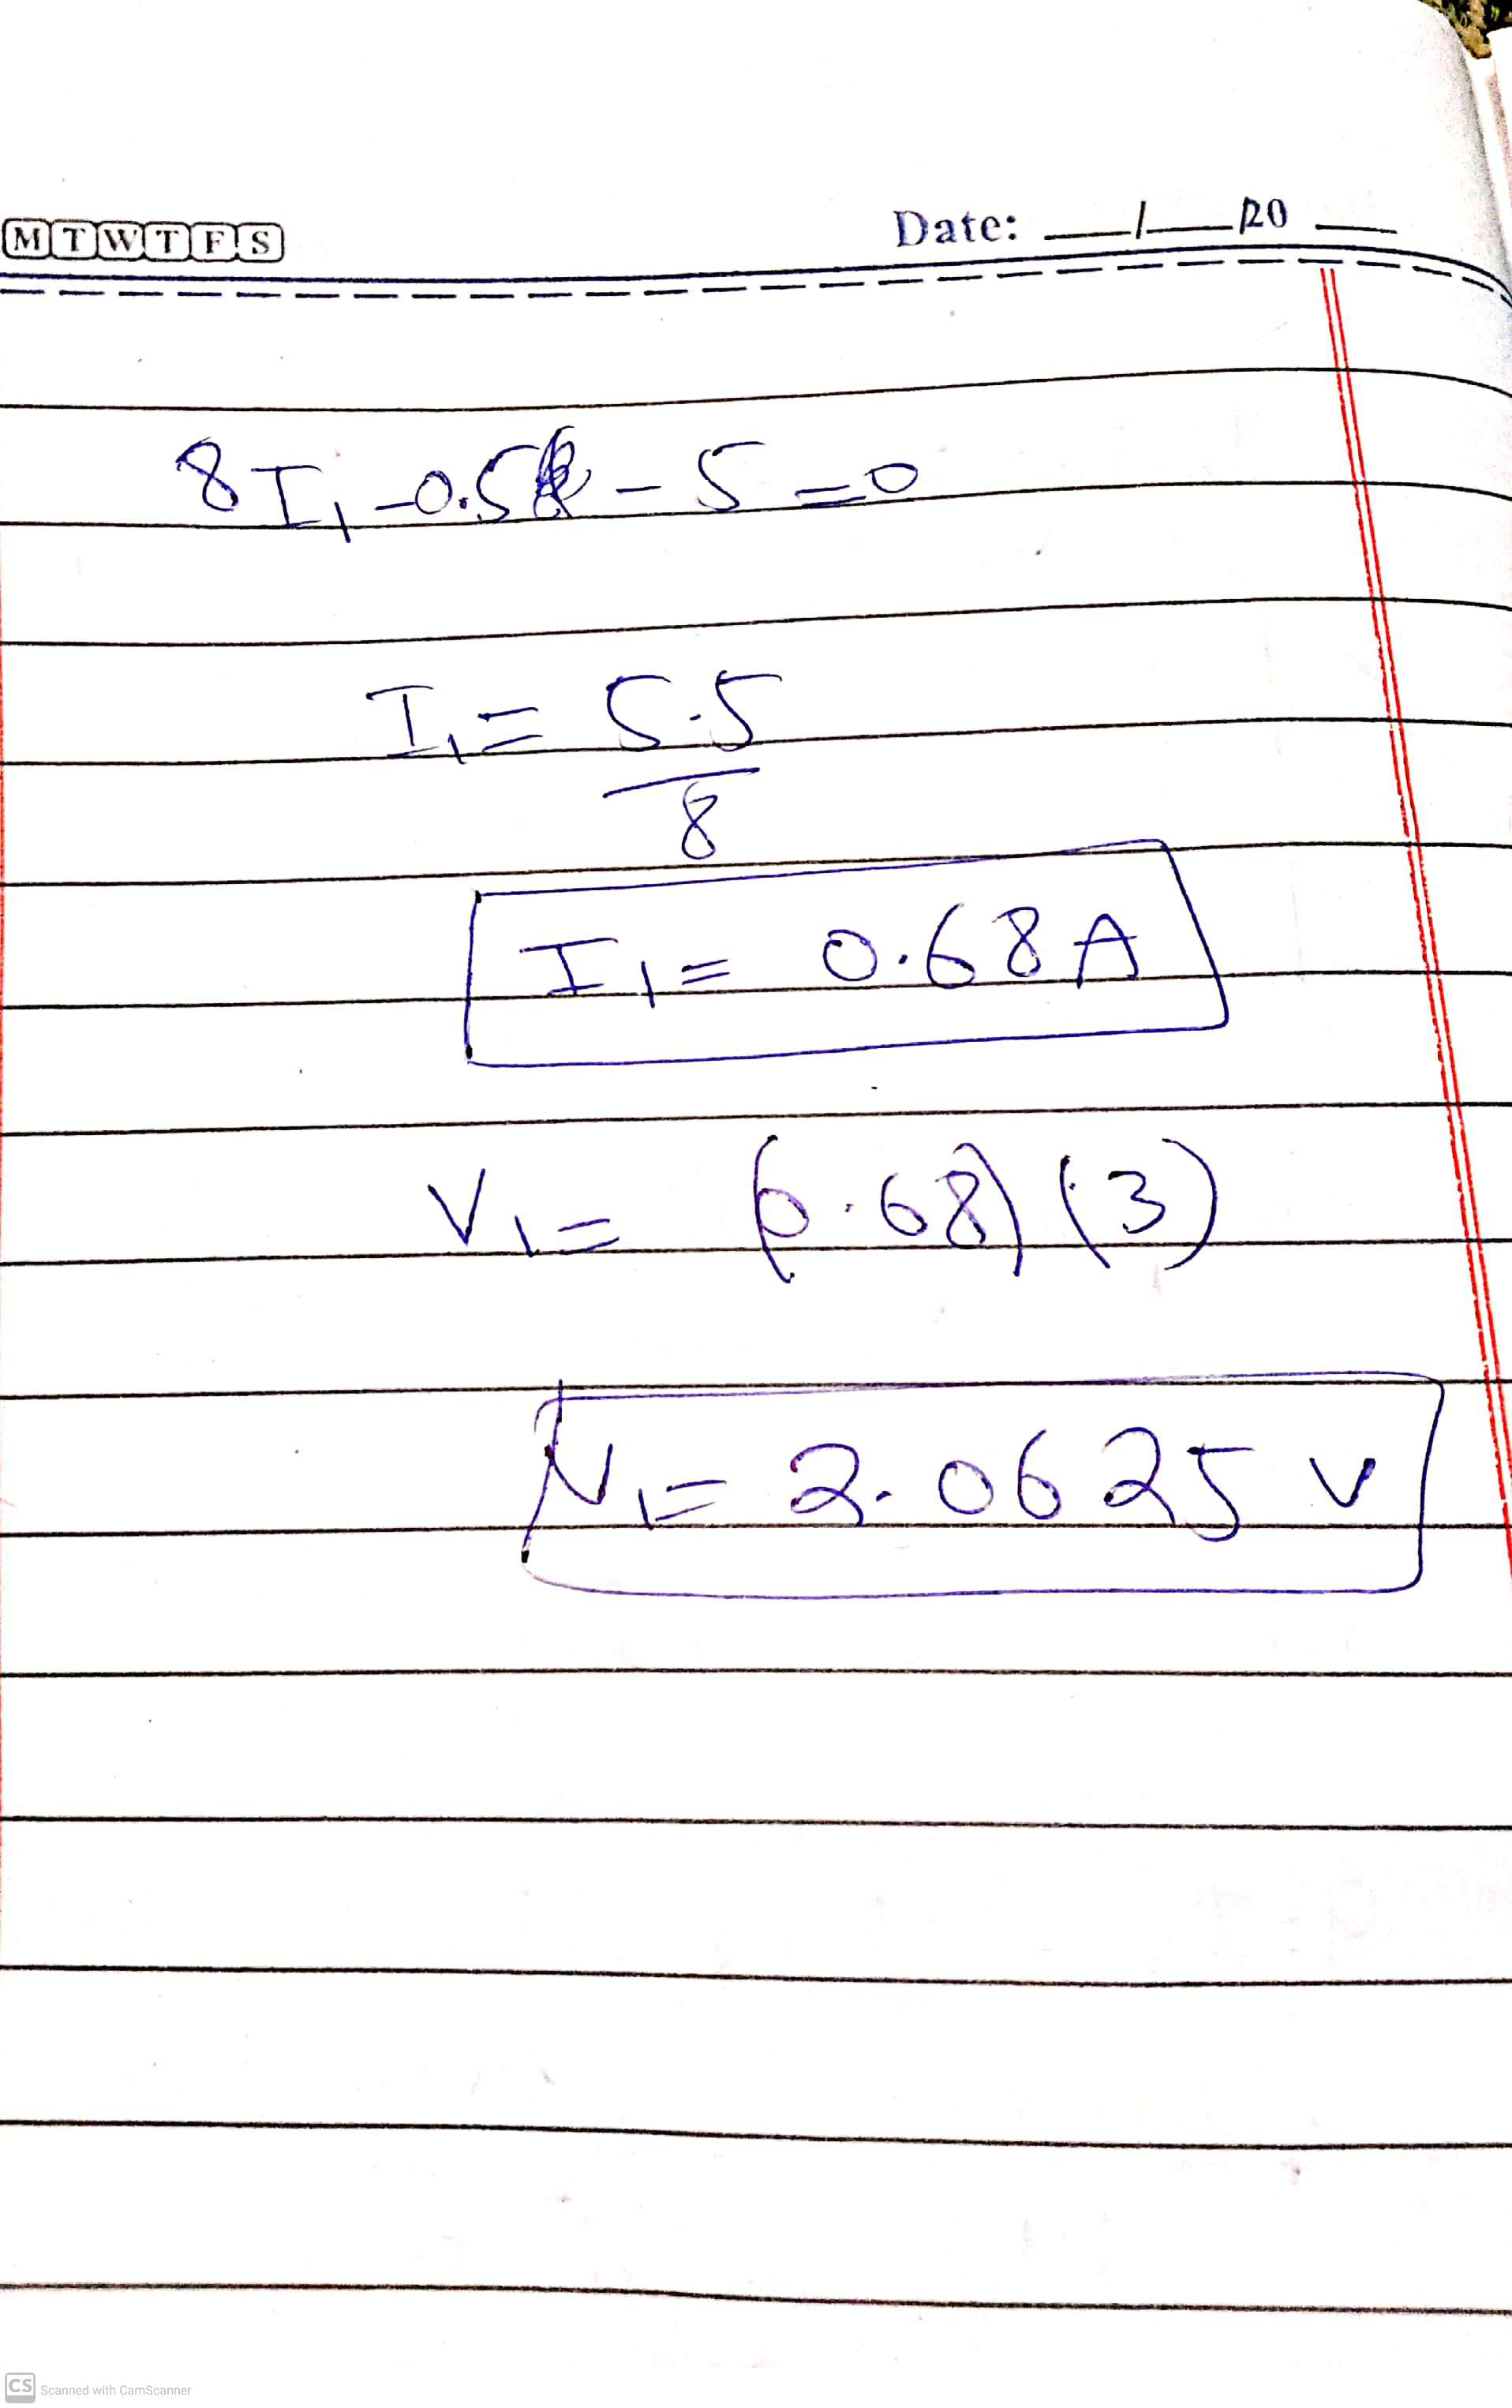 M T W T F S
Date: __/__/20__
8I₁ -0.5 - 5 = 0
I₁ = 5.5
8
I₁ = 0.68 A
V₁ = (0.68)(3)
V₁ = 2.0625 V
CS Scanned with CamScanner